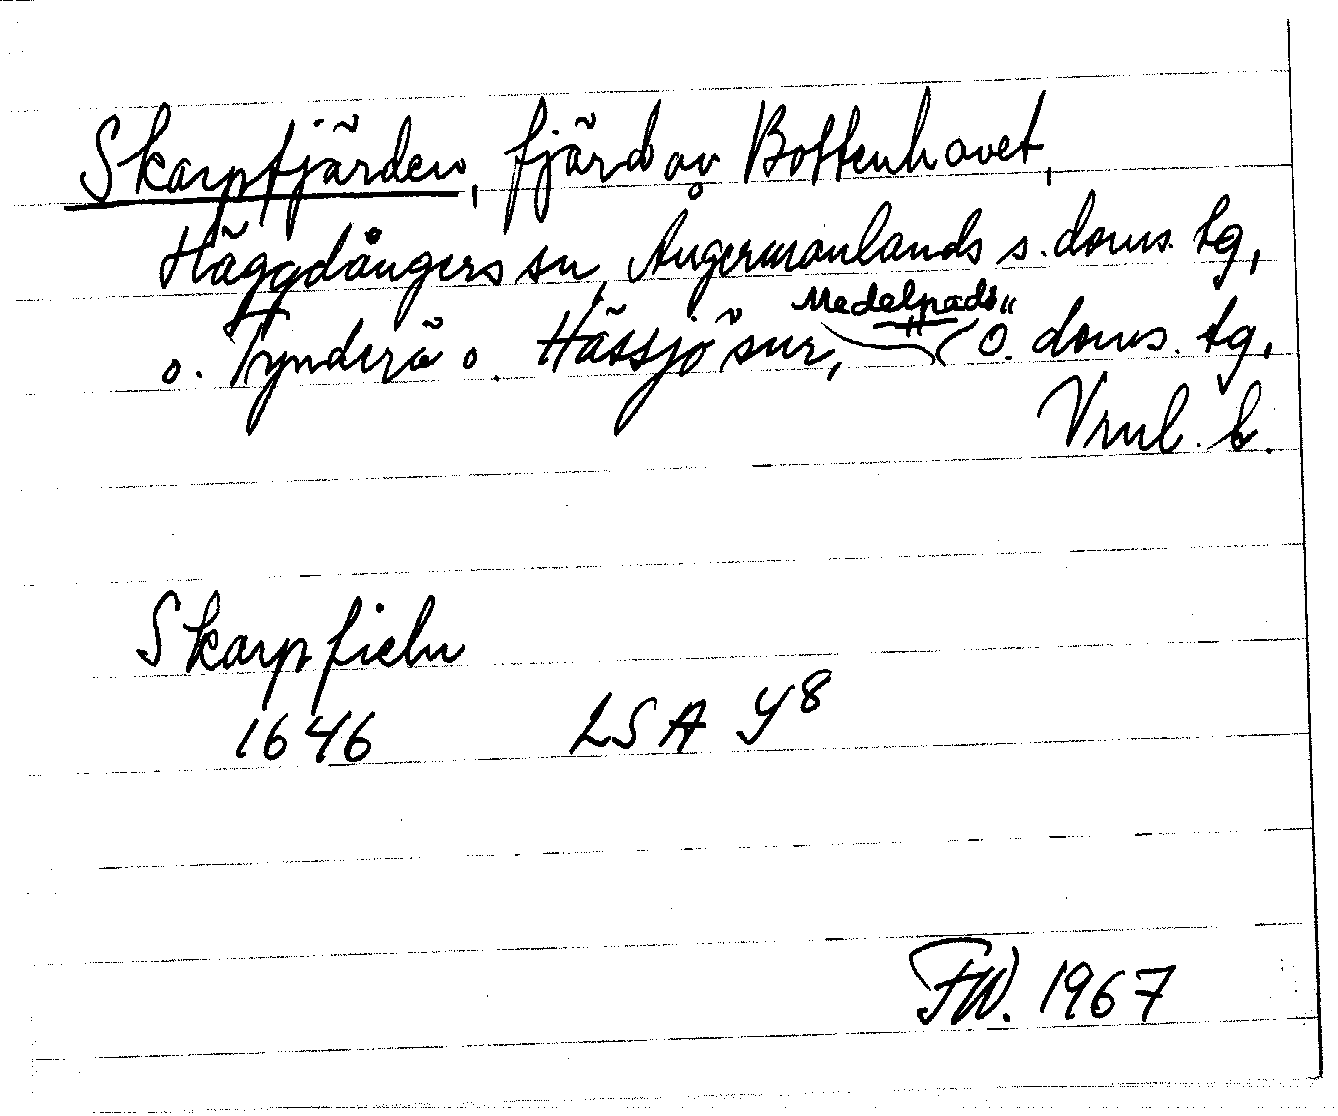 Skarpfjärden, fjärd av Bottenhavet,
Häggdångers sn, Ångermanlands s. doms. tg,
o. Tynderö o. Hässjö snr, Medelpads ö. doms. tg,
Vrnl. l.
Skarp fieln
1646 LSA Y8
FW. 1967